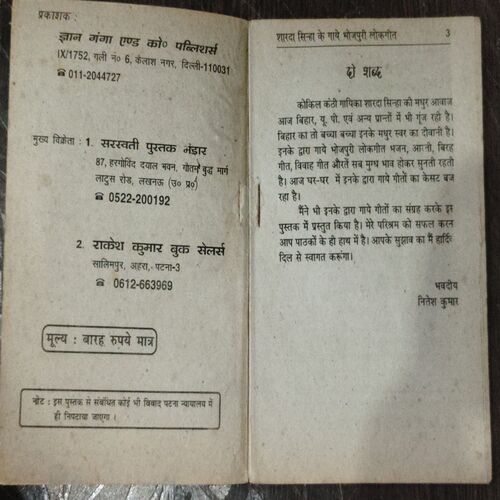 प्रकाशक :
ज्ञान गंगा एण्ड को० पब्लिशर्स
IX/1752, गली नं० 6, कैलाश नगर, दिल्ली-110031
☎ 011-2044727
मुख्य विक्रेता : 1. सरस्वती पुस्तक भंडार
87, हरगोविंद दयाल भवन, गौतम बुद्ध मार्ग
लाटुस रोड, लखनऊ (उ० प्र०)
☎ 0522-200192
2. राकेश कुमार बुक सेलर्स
सालिमपुर, अहरा, पटना-3
☎ 0612-663969
मूल्य : बारह रुपये मात्र
नोट : इस पुस्तक से संबंधित कोई भी विवाद पटना न्यायालय में
ही निपटाया जाएगा ।
शारदा सिन्हा के गाये भोजपुरी लोकगीत 3
दो शब्द
कोकिल कंठी गायिका शारदा सिन्हा की मधुर आवाज
आज बिहार, यू. पी. एवं अन्य प्रान्तों में भी गूंज रही है।
बिहार का तो बच्चा बच्चा इनके मधुर स्वर का दीवानी है।
इनके द्वारा गाये भोजपुरी लोकगीत भजन, आरती, बिरह
गीत, विवाह गीत औरतें सब मुग्ध भाव होकर सुनती रहती
है। आज घर-घर में इनके द्वारा गाये गीतों का केसट बज
रहा है।
मैंने भी इनके द्वारा गाये गीतों का संग्रह करके इस
पुस्तक में प्रस्तुत किया है। मेरे परिश्रम को सफल करन
आप पाठकों के ही हाथ में है। आपके सुझाव का मैं हार्दि
दिल से स्वागत करूंगा।
भवदीय
नितेश कुमार